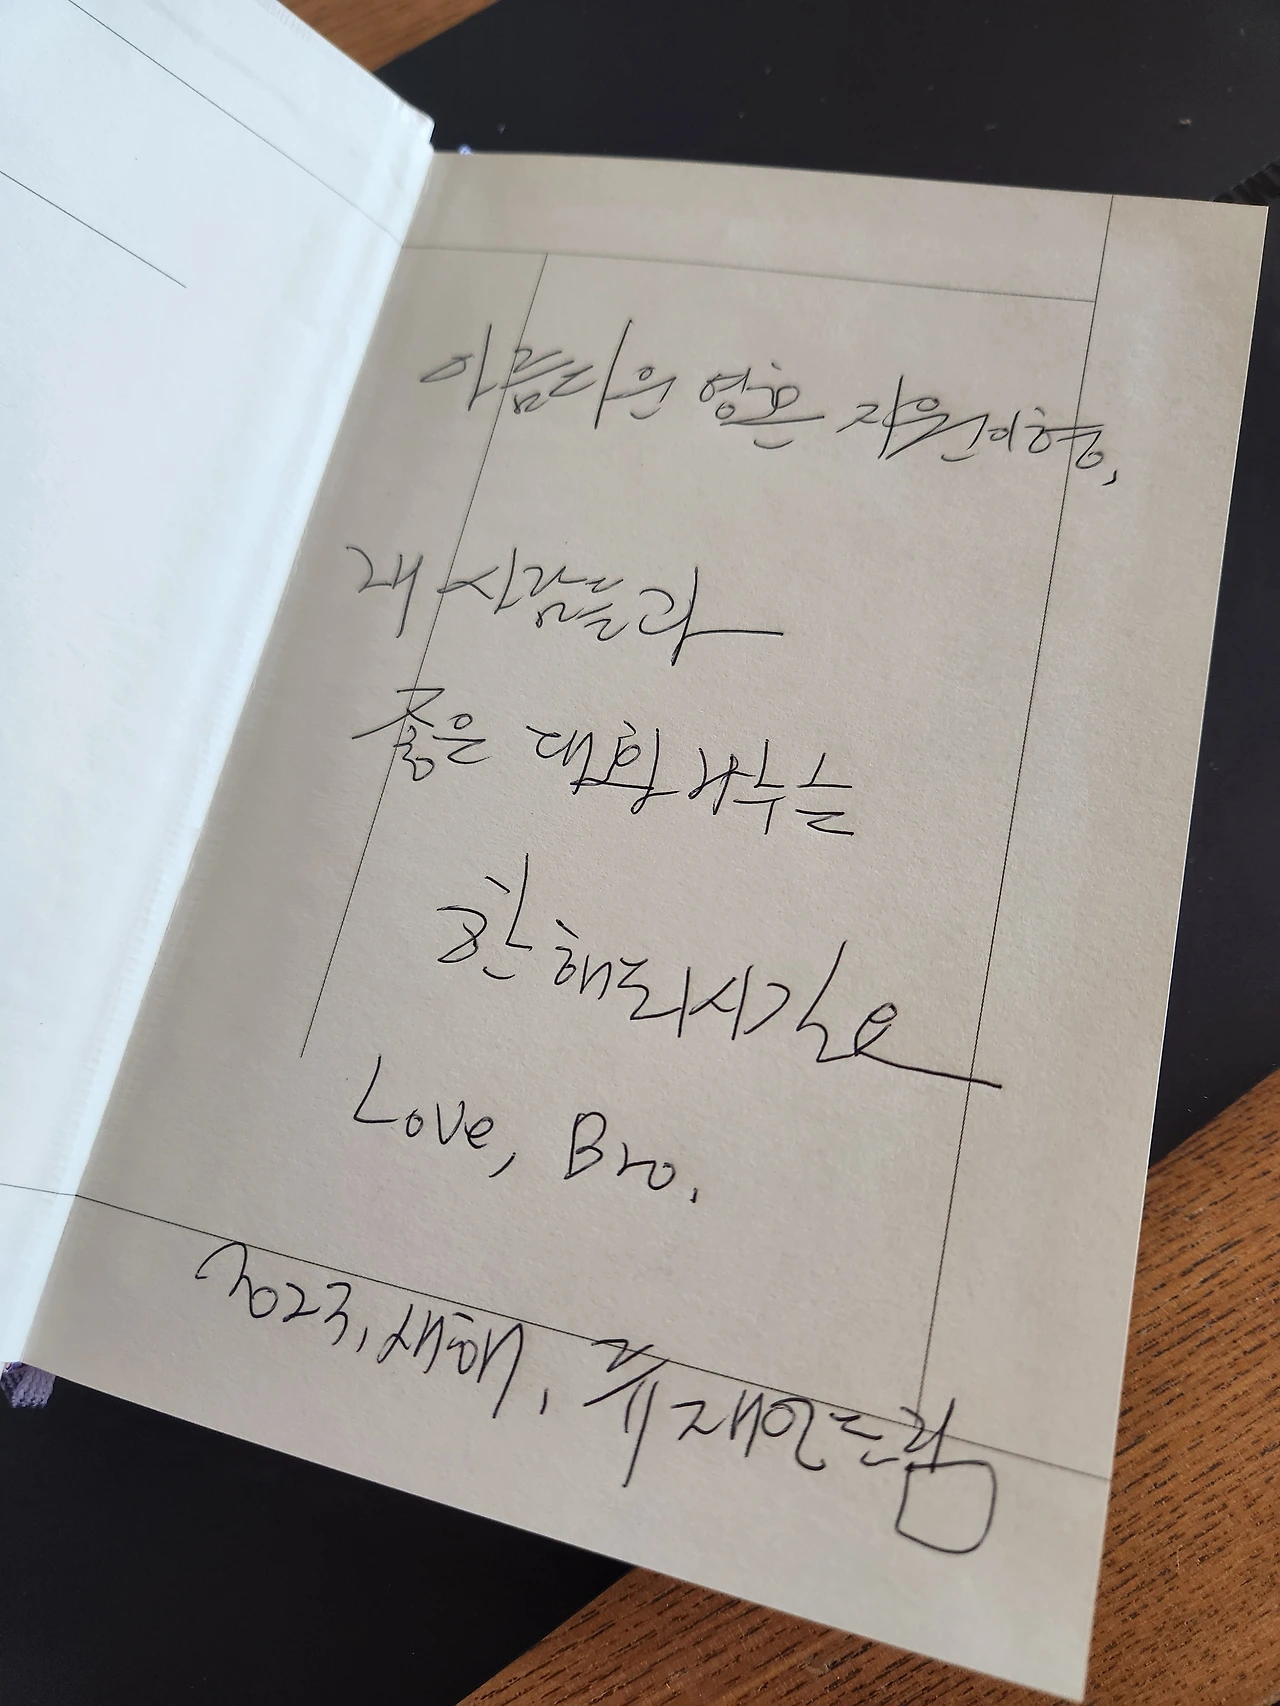 아름다운 영혼 지원이형,
내 사람들과
좋은 대화 나누는
한 해 되시길
Love, Bro.
2023, 새해, 류재언 드림